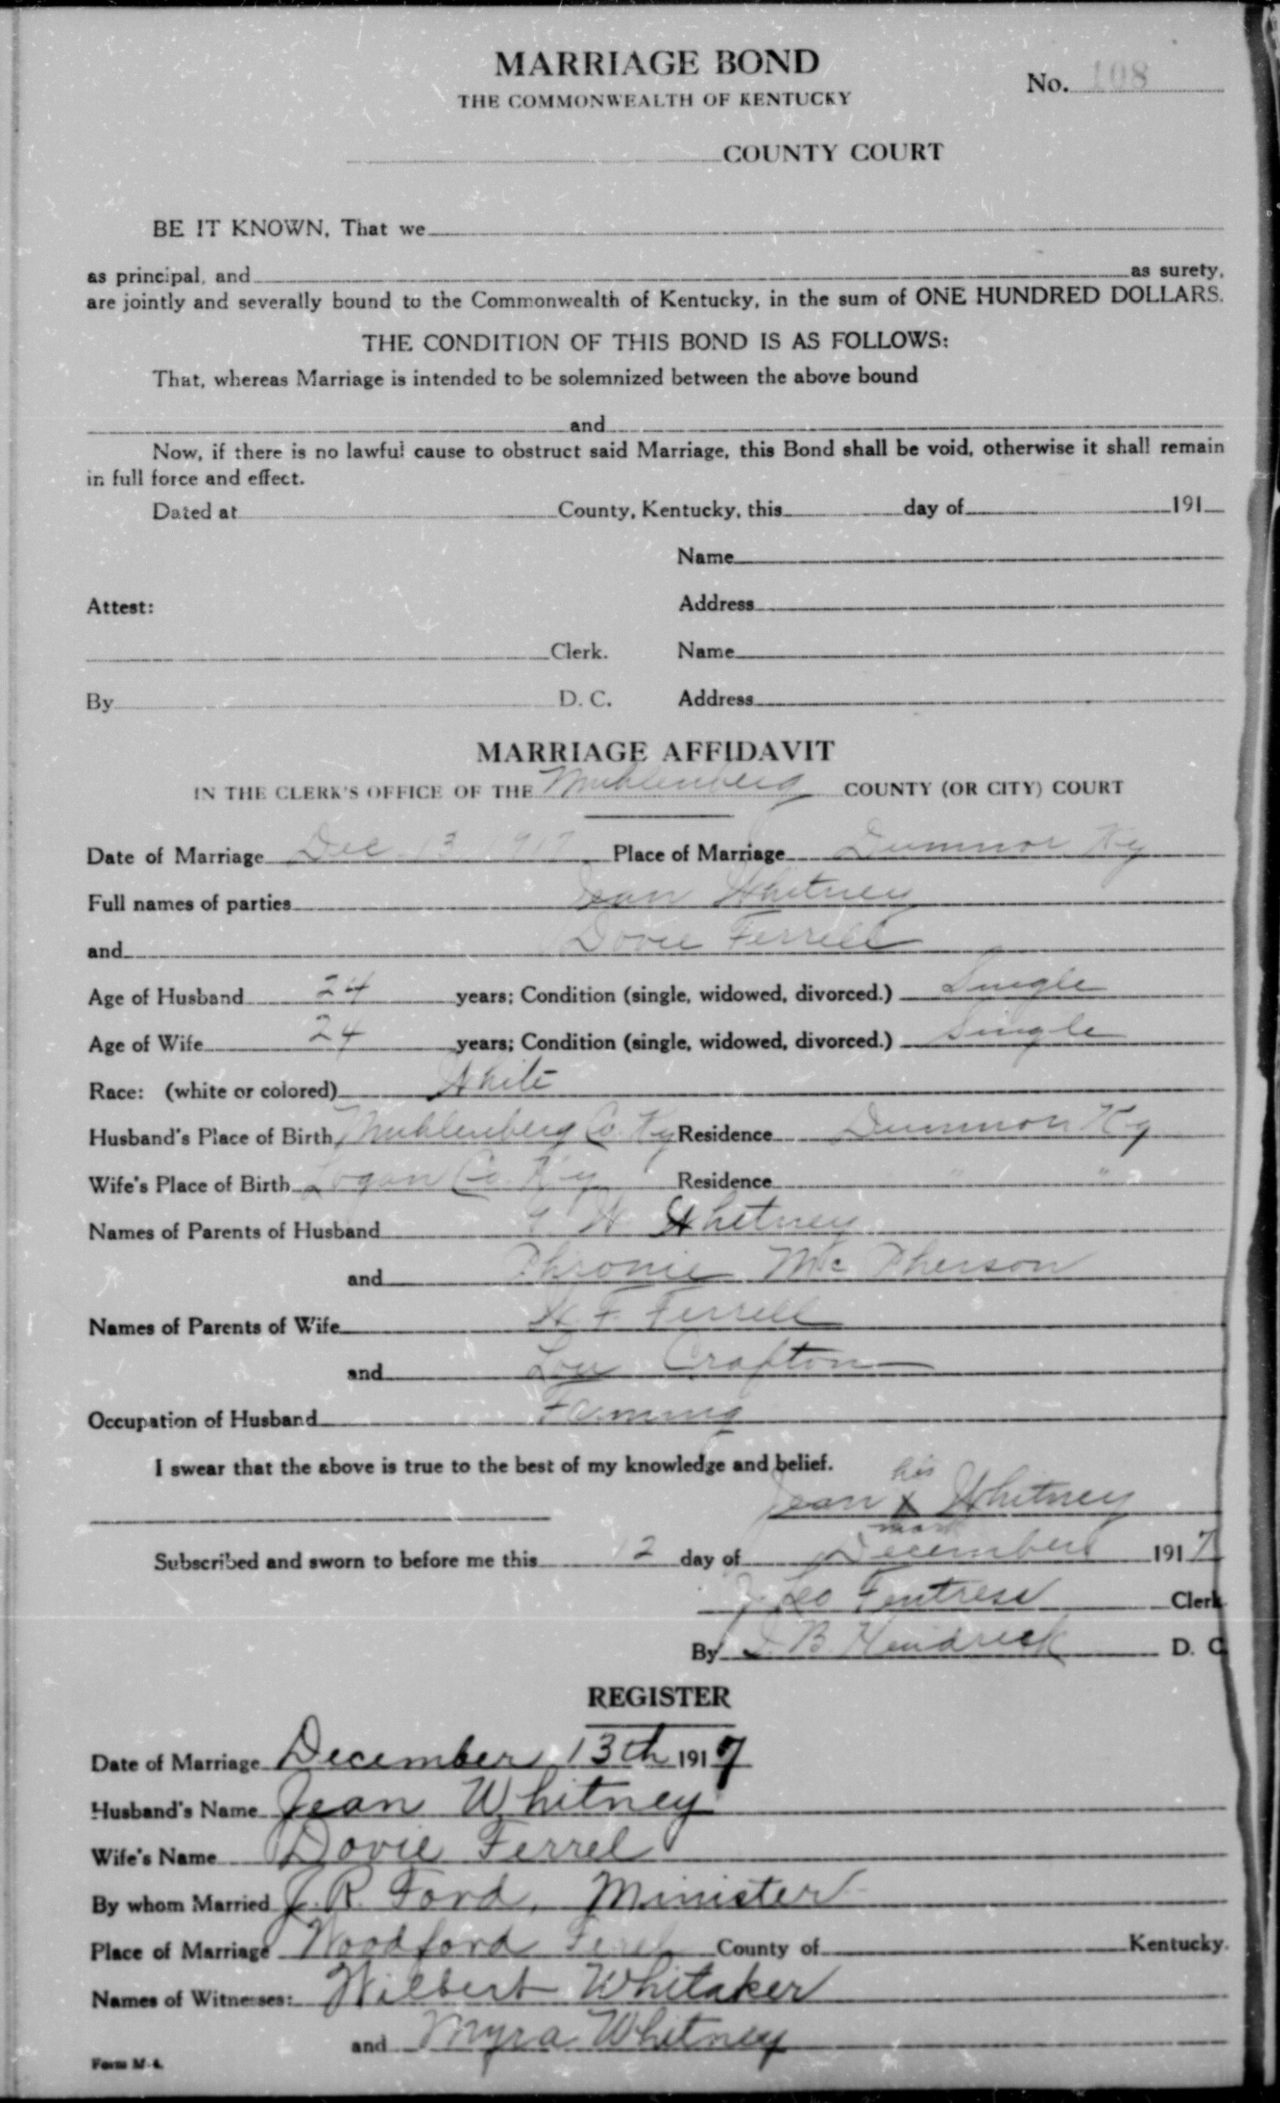 MARRIAGE BOND
No. 108
THE COMMONWEALTH OF KENTUCKY
COUNTY COURT
BE IT KNOWN, That we
as principal, and as surety,
are jointly and severally bound to the Commonwealth of Kentucky, in the sum of ONE HUNDRED DOLLARS.
THE CONDITION OF THIS BOND IS AS FOLLOWS:
That, whereas Marriage is intended to be solemnized between the above bound
and
Now, if there is no lawful cause to obstruct said Marriage, this Bond shall be void, otherwise it shall remain
in full force and effect.
Dated at County, Kentucky, this day of 191
Name
Attest: Address
Clerk. Name
By D. C. Address
MARRIAGE AFFIDAVIT
IN THE CLERK'S OFFICE OF THE Muhlenberg COUNTY (OR CITY) COURT
Date of Marriage Dec 13 1917 Place of Marriage Dunmor Ky
Full names of parties Jean Whitney
and Dovie Ferrell
Age of Husband 24 years; Condition (single, widowed, divorced.) Single
Age of Wife 24 years; Condition (single, widowed, divorced.) Single
Race: (white or colored) White
Husband's Place of Birth Muhlenberg Co. Ky Residence Dunmor Ky
Wife's Place of Birth Logan Co. Ky Residence " "
Names of Parents of Husband W Whitney
and Phronie McPherson
Names of Parents of Wife W. F. Ferrell
and Lou Crafton
Occupation of Husband Farming
I swear that the above is true to the best of my knowledge and belief.
his
Jean X Whitney
mark
Subscribed and sworn to before me this 12 day of December 1917
J. Leo Fentress Clerk
By J. B. Hendrick D. C
REGISTER
Date of Marriage December 13th 1917
Husband's Name Jean Whitney
Wife's Name Dovie Ferrel
By whom Married J. R. Ford, Minister
Place of Marriage Woodford County of Kentucky.
Names of Witnesses: Wilbert Whitaker
and Myra Whitney
Form M-4.